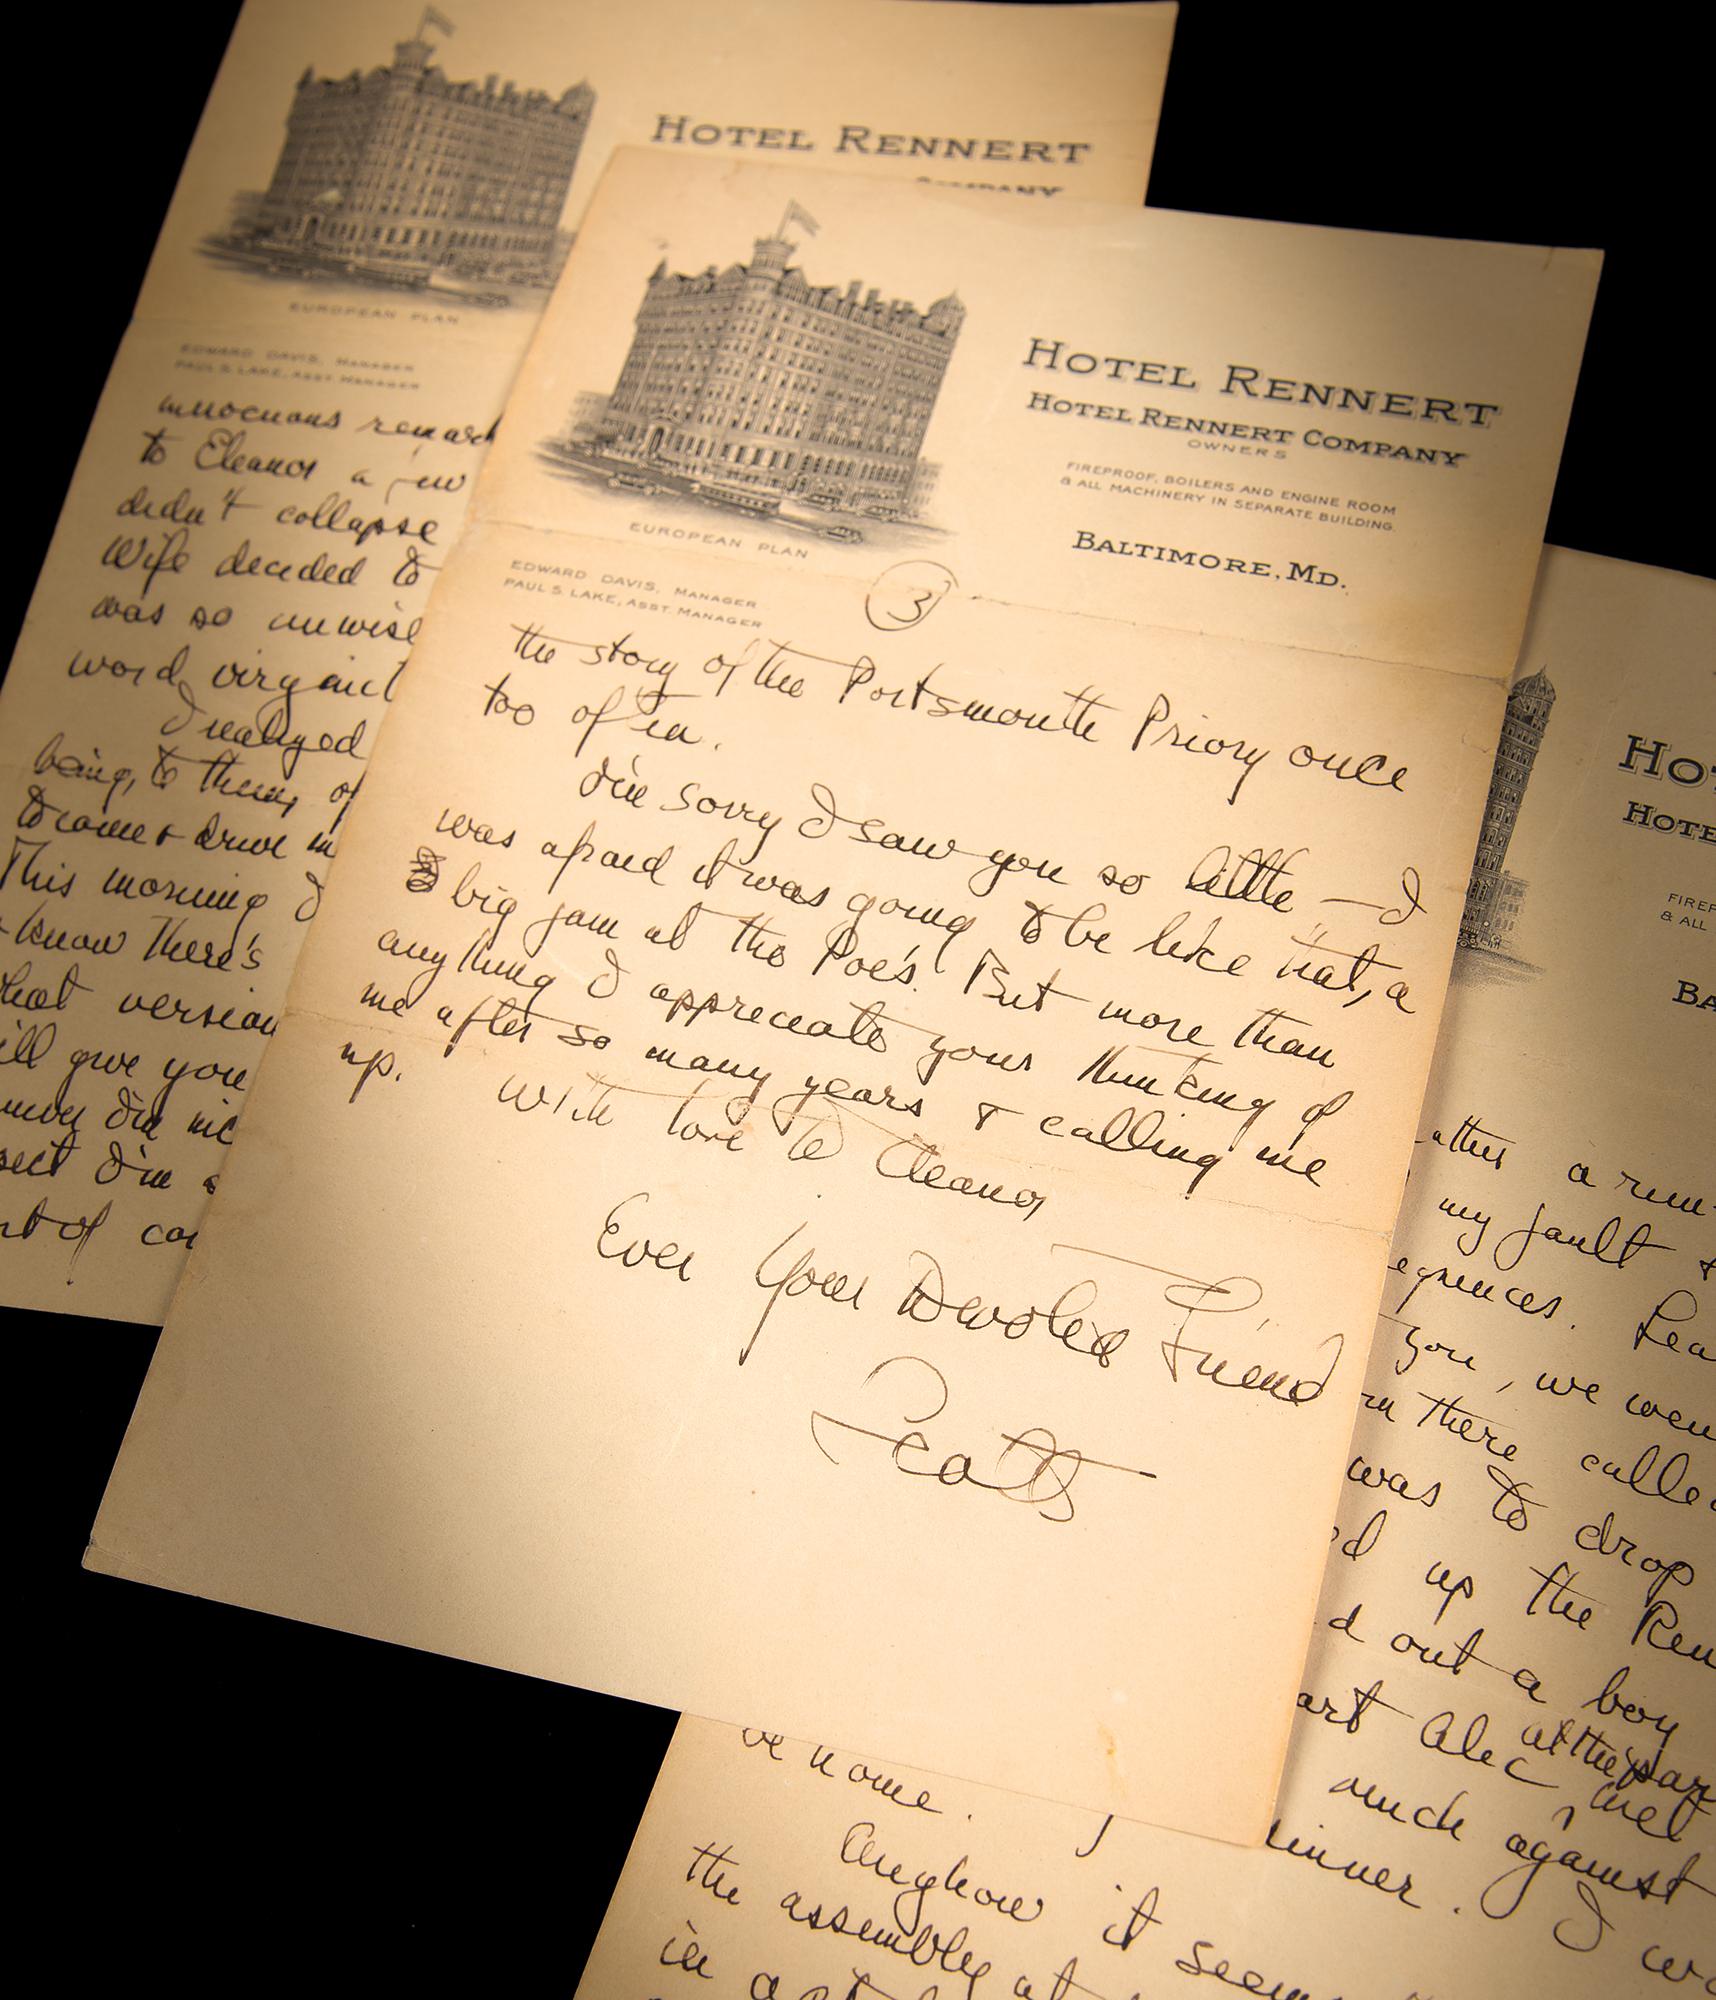 HOTEL RENNERT
COMPANY
EUROPEAN PLAN
EDWARD DAVIS, MANAGER
PAUL S. LAKE, ASST. MANAGER
to Eleanor a
didn't collapse
Wife decided to
was so unwise
word
I realized
being, to them, of
to come & drive
This morning I
know there's
version
give you
I'm
I'm a
of
HOTEL RENNERT
HOTEL RENNERT COMPANY
OWNERS
FIREPROOF, BOILERS AND ENGINE ROOM
& ALL MACHINERY IN SEPARATE BUILDING.
BALTIMORE, MD.
EUROPEAN PLAN
EDWARD DAVIS, MANAGER
PAUL S. LAKE, ASST. MANAGER
3
the story of the Portsmouth Priory once
too often.
I'm sorry I saw you so little — I
was afraid it was going to be like that, a
big jam at the Poe's. But more than
anything I appreciate your thinking of
me after so many years & calling me
up.
With love to Eleanor
Ever Your Devoted Friend
Scott
& ALL
a run-
my fault &
you, we
there
was to drop
up the
out a boy
Alec at the
much against
I
home.
Anyhow it
the assembly at
in